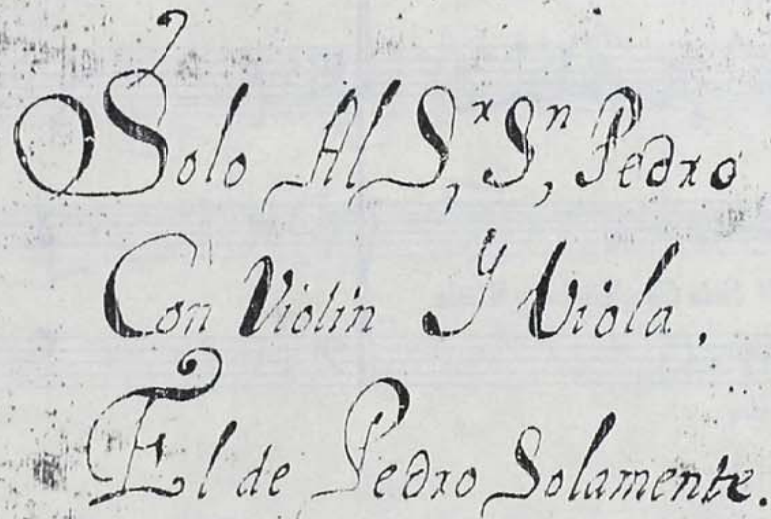 Solo Al S,ʳ Sⁿ, Pedro
Con Violin Y Viola.
El de Pedro Solamente.